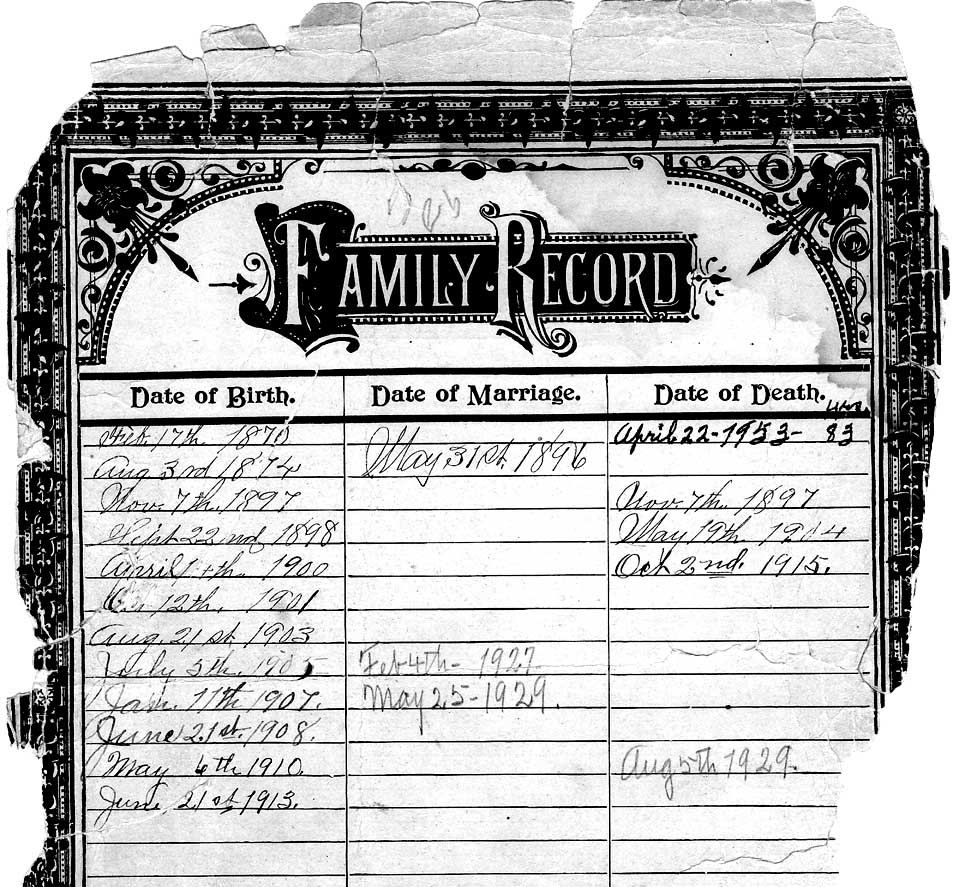 FAMILY RECORD
Date of Birth. Date of Marriage. Date of Death.
Feb. 17th 1870 April 22-1953- 83
Aug 3rd 1874 May 31st 1896
Nov. 7th. 1897 Nov. 7th. 1897
Sept 22nd 1898 May 19th 1904
April th. 1900 Oct 2nd. 1915.
12th. 1901
Aug. 21st 1903
July 5th. 1905 Feb 4th- 1927
Jan. 11th 1907. May 25-1929.
June 21st. 1908.
May 6th 1910. Aug 5th 1929.
June 21st 1913.